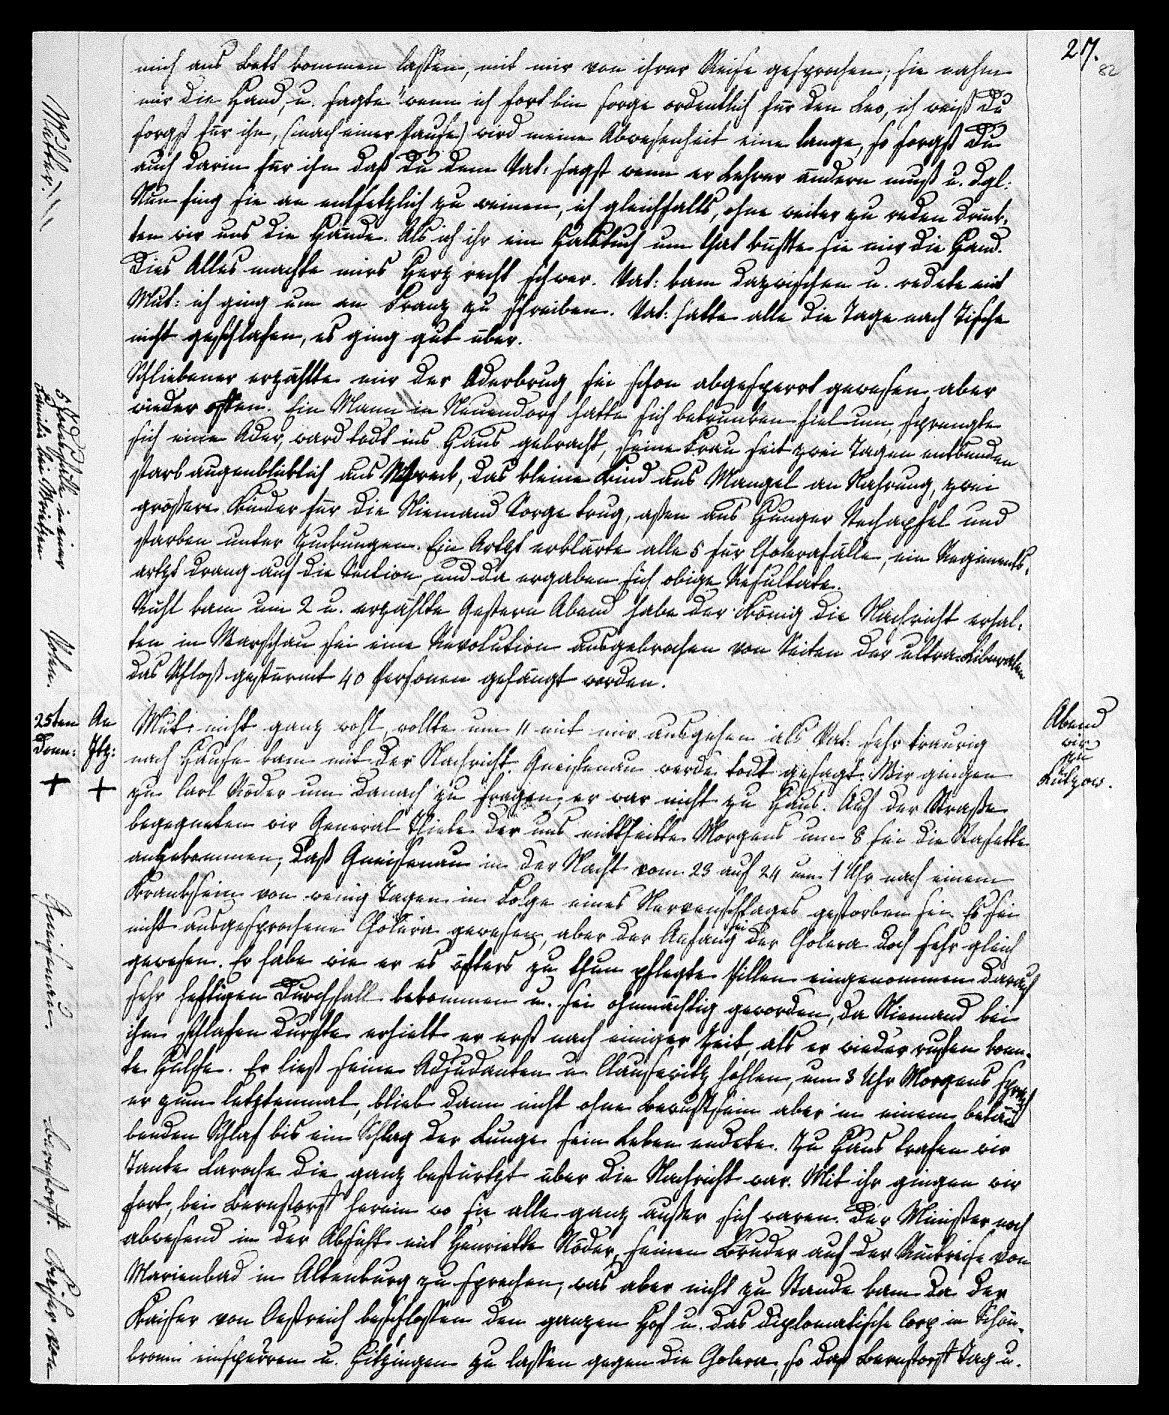 27.
82
mich ans Bett kommen lassen, mit mir von ihrer Reise gesprochen; sie nahm
mir die Hand, u. sagte "wenn ich fort bin sorge ordentlich für den Leo, ich weiß Du
sorgst für ihn, (nach einer Pause) wird meine Abwesenheit eine lange, so sorgst Du
auch darin für ihn daß Du dem Vat: sagst wenn er Lehrer ändern muß u. dgl:
Nun fing sie an entsetzlich zu weinen, ich gleichfalls, ohne weiter zu reden drück-
ten wir uns die Hände. Als ich ihr ein Halstuch um that küßte sie mir die Hand.
Dies Alles machte mirs Herz recht schwer. Vat: kam dazwischen u. redete mit
Mut: ich ging um an Franz zu schreiben. Vat: hatte alle die Tage nach Tische
nicht geschlafen, es ging gut über.
Schliebener erzählte mir der Oderbrug sei schon abgesperrt gewesen aber
wieder offen. Ein Mann in Neuendorf hatte sich betrunken fiel um, sprengte
sich eine Ader, ward todt ins Haus gebracht, seine Frau seit zwei Tagen entbunden
starb augenblicklich aus Schreck, das kleine Kind aus Mangel an Nahrung, zwei
größere Kinder für die Niemand Sorge trug, aßen aus Hunger Stechapfel und
starben unter Zuckungen. Ein Artzt erklärte alle 5 für Cholerafälle, ein Regiments-
artzt drang auf die Section und da ergaben sich obige Resultate.
Rühl kam um 2 u. erzählte Gestern Abend habe der König die Nachricht erhal-
ten in Warschau sei eine Revolution ausgebrochen von Seiten der ultra-Liberalen
das Schloß gestürmt 40 Personen gehängt worden.
Mut: nicht ganz wohl, wollte um 11 mit mir ausgehen als Vat: sehr traurig
nach Hause kam mit der Nachricht. Gneisenau werde todt gesagt. Wir gingen
zu Carl Röder um danach zu fragen, er war nicht zu Haus. Auf der Straße
begegneten wir General Thiele der uns mittheilte Morgens um 8 sei die Stafette
angekommen, daß Gneisenau in der Nacht vom 23 auf 24 um 1 Uhr nach einem
Kranksein von wenig Tagen in Folge eines Nervenschlages gestorben sei. Es sei
nicht ausgesprochene Cholera gewesen, aber der Anfang sei der Cholera doch sehr gleich
gewesen. Er habe wie er es öfters zu thun pflegte Pillen eingenommen darauf
sehr heftigen Durchfall bekommen u. sei ohnmächtig geworden, da Niemand bei
ihm schlafen durfte erhielt er erst nach einiger Zeit, als er wieder rufen konn-
te Hülfe. Er ließ seine Adjudanten u Clausewitz hohlen, um 3 Uhr Morgens sprach
er zum letztenmal, blieb dann nicht ohne Bewußtsein aber in einem betäu-
benden Schlaf bis ein Schlag der Lunge sein Leben endete. Zu Haus trafen wir
Tante Laroche die ganz bestürtzt über die Nachricht war. Mit ihr gingen wir
fort, bei Bernstorff herein wo sie alle ganz außer sich waren. Der Minister noch
abwesend in der Absicht mit Henriette Röder, seinen Bruder auf der Rückreise von
Marienbad in Altenburg zu sprechen, was aber nicht zu Stande kam da der
Kaiser von Oestreich beschlossen den ganzen Hof u. das diplomatische Corp in Schön-
bronn einsperren u. Hitzingen zu lassen gegen die Colera, so daß Bernstorff Tag u.
Mutter.
5 Todesfälle in einer
Familie bei Writzen
Polen.
25ten
Donn:
+
An
Ptz:
+
Gneisenau.
Bernstorff.
Kaiser von
Abend
wir
zu
Lützow.